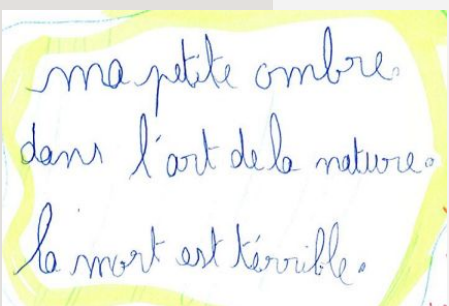 ma petite ombre.
dans l'art de la nature.
la mort est térrible.